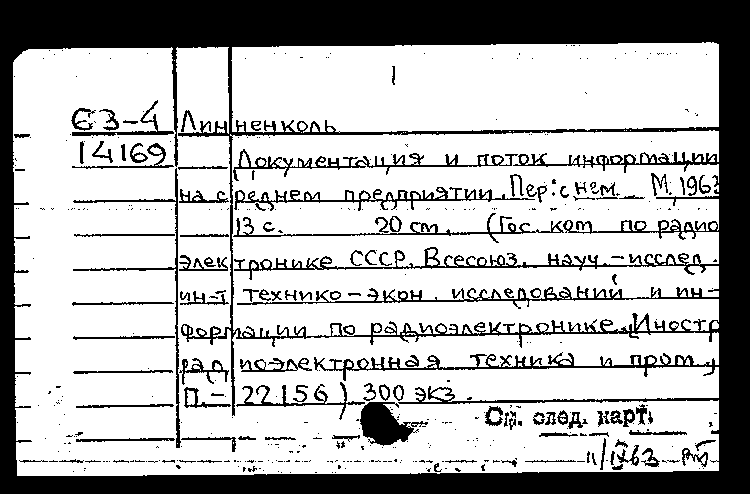 1
63-4 Линненколь
14169 Документация и поток информации
на среднем предприятии. Пер. с нем. М, 1963
13 с. 20 см. (Гос. ком по радио
электронике СССР. Всесоюз. науч.-исслед.
ин-т технико-экон. исследований и ин-
формации по радиоэлектронике. Иностр
радиоэлектронная техника и пром.,
П.-22156) 300 экз.
См. след. карт.
11/IV63